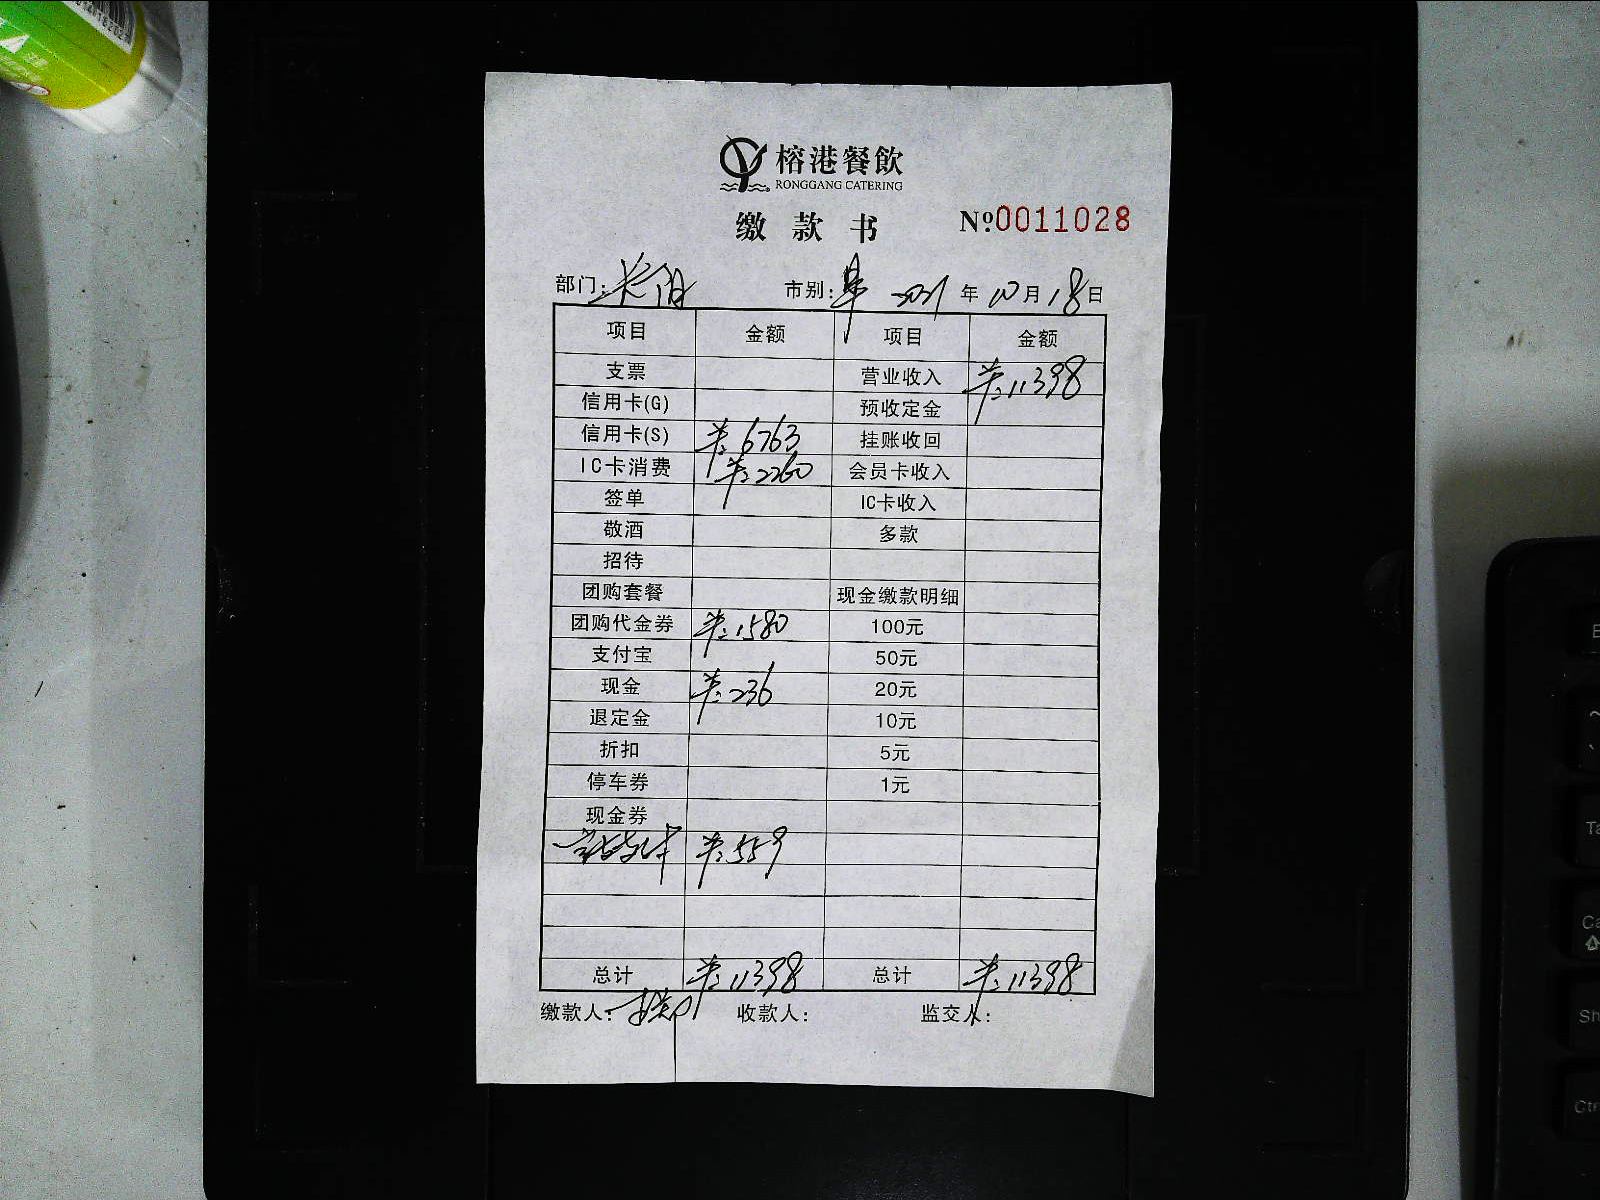 榕港餐飲
RONGGANG CATERING
缴款书 №0011028
部门: 市别: 2021年10月18日
项目 金额 项目 金额
支票 营业收入 ¥:11398
信用卡(G) 预收定金
信用卡(S) ¥:6763 挂账收回
IC卡消费 ¥:2260 会员卡收入
签单 IC卡收入
敬酒 多款
招待
团购套餐 现金缴款明细
团购代金券 ¥:1580 100元
支付宝 50元
现金 ¥:236 20元
退定金 10元
折扣 5元
停车券 1元
现金券
¥:559
总计 ¥:11398 总计 ¥:11398
缴款人: 收款人: 监交人: